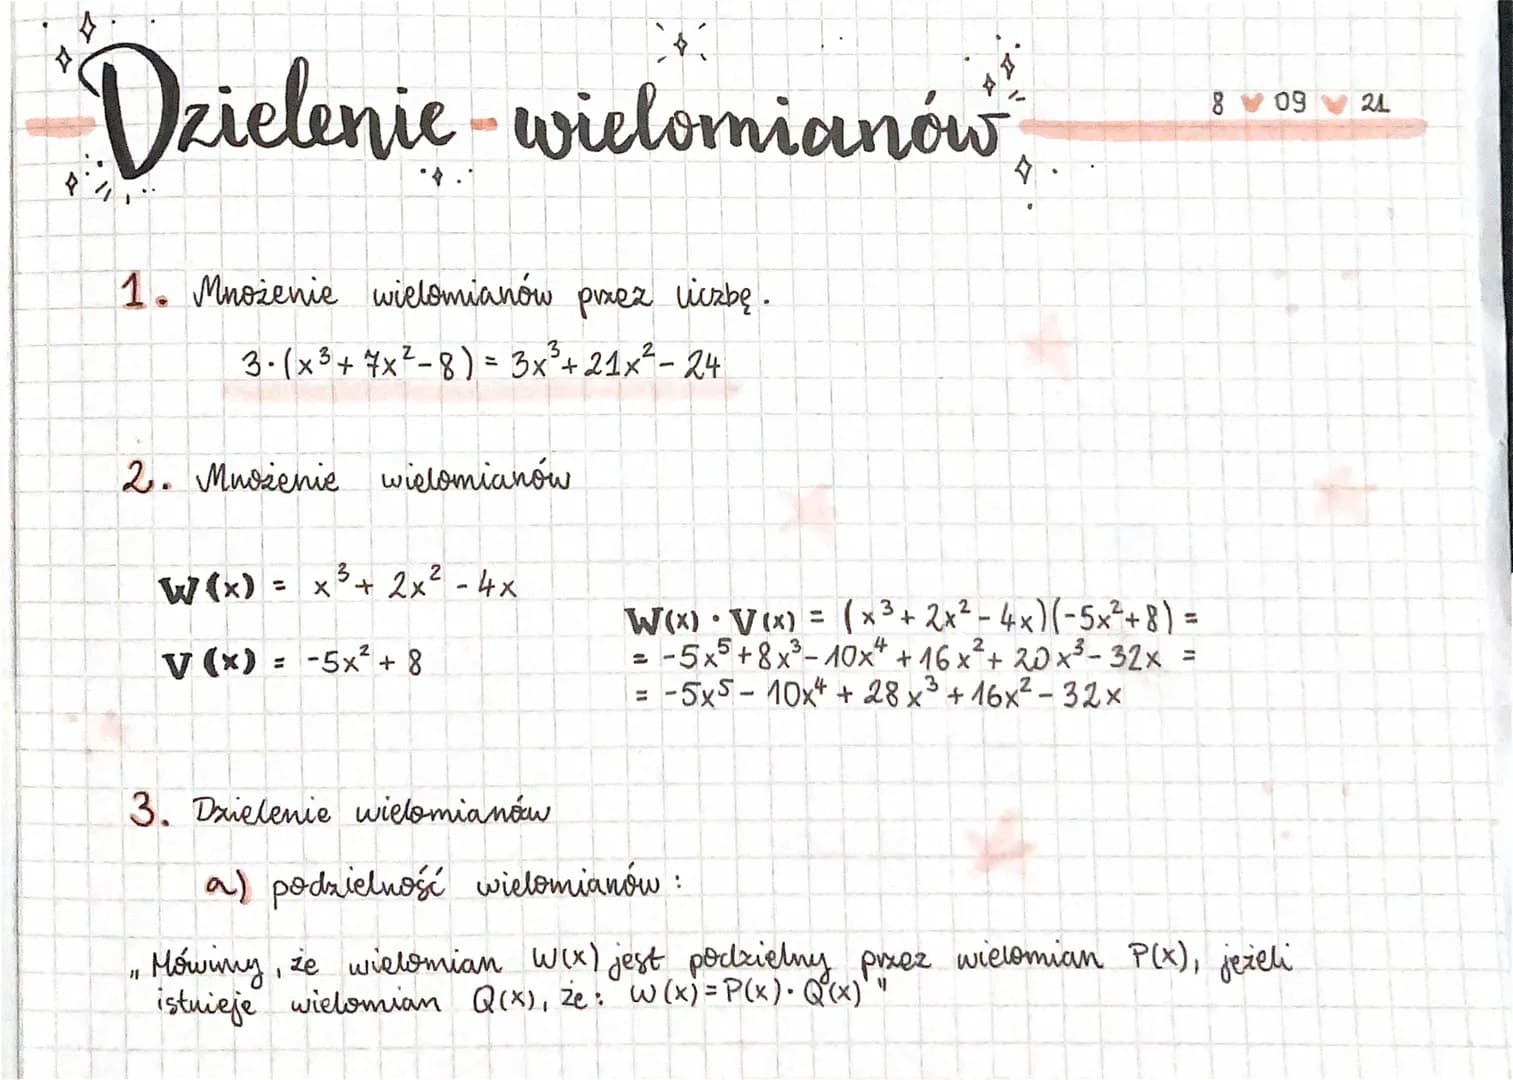 Dzielenie - wielomianów
8 ♥ 09 ♥ 21
1. Mnożenie wielomianów przez liczbę.
3·(x³+ 7x²-8) = 3x³+21x²- 24
2. Mnożenie wielomianów
W(x) = x³+ 2x² - 4x
V(x) = -5x² + 8
W(x) · V(x) = (x³+ 2x² - 4x)(-5x²+8) =
= -5x⁵+8x³- 10x⁴ + 16x²+ 20x³- 32x =
= -5x⁵ - 10x⁴ + 28x³ + 16x² - 32x
3. Dzielenie wielomianów
a) podzielność wielomianów :
„Mówimy, że wielomian W(x) jest podzielny przez wielomian P(x), jeżeli
istnieje wielomian Q(x), że: W(x) = P(x) · Q(x)"